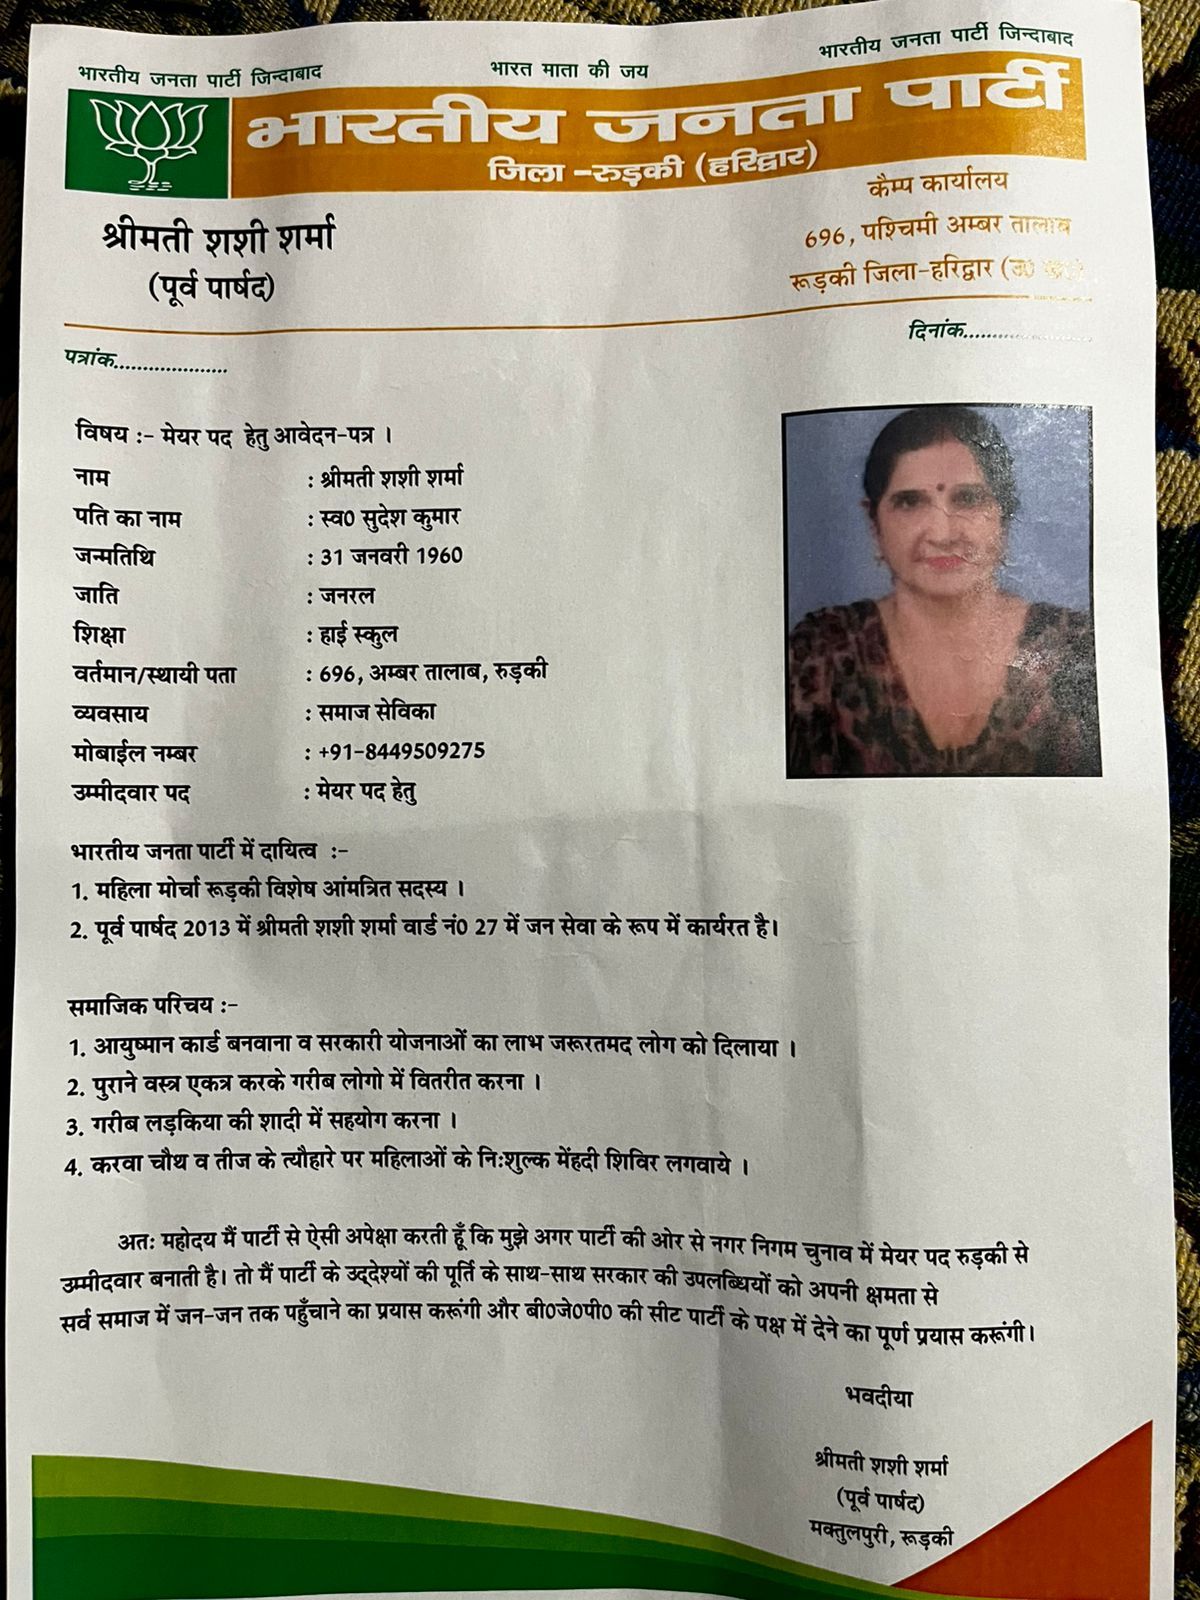 भारतीय जनता पार्टी जिन्दाबाद
भारत माता की जय
भारतीय जनता पार्टी जिन्दाबाद
भारतीय जनता पार्टी
जिला -रुड़की (हरिद्वार)
श्रीमती शशी शर्मा
(पूर्व पार्षद)
कैम्प कार्यालय
696, पश्चिमी अम्बर तालाब
रूड़की जिला-हरिद्वार
पत्रांक....................
दिनांक......................
विषय :- मेयर पद हेतु आवेदन-पत्र ।
नाम : श्रीमती शशी शर्मा
पति का नाम : स्व0 सुदेश कुमार
जन्मतिथि : 31 जनवरी 1960
जाति : जनरल
शिक्षा : हाई स्कुल
वर्तमान/स्थायी पता : 696, अम्बर तालाब, रुड़की
व्यवसाय : समाज सेविका
मोबाईल नम्बर : +91-8449509275
उम्मीदवार पद : मेयर पद हेतु
भारतीय जनता पार्टी में दायित्व :-
1. महिला मोर्चा रूड़की विशेष आंमत्रित सदस्य ।
2. पूर्व पार्षद 2013 में श्रीमती शशी शर्मा वार्ड नं0 27 में जन सेवा के रूप में कार्यरत है।
समाजिक परिचय :-
1. आयुष्मान कार्ड बनवाना व सरकारी योजनाओं का लाभ जरूरतमद लोग को दिलाया ।
2. पुराने वस्त्र एकत्र करके गरीब लोगो में वितरीत करना ।
3. गरीब लड़किया की शादी में सहयोग करना ।
4. करवा चौथ व तीज के त्यौहारे पर महिलाओं के निःशुल्क मेंहदी शिविर लगवाये ।
अतः महोदय मैं पार्टी से ऐसी अपेक्षा करती हूँ कि मुझे अगर पार्टी की ओर से नगर निगम चुनाव में मेयर पद रुड़की से
उम्मीदवार बनाती है। तो मैं पार्टी के उद्देश्यों की पूर्ति के साथ-साथ सरकार की उपलब्धियों को अपनी क्षमता से
सर्व समाज में जन-जन तक पहुँचाने का प्रयास करूंगी और बी0जे0पी0 की सीट पार्टी के पक्ष में देने का पूर्ण प्रयास करूंगी।
भवदीया
श्रीमती शशी शर्मा
(पूर्व पार्षद)
मक्तुलपुरी, रूड़की